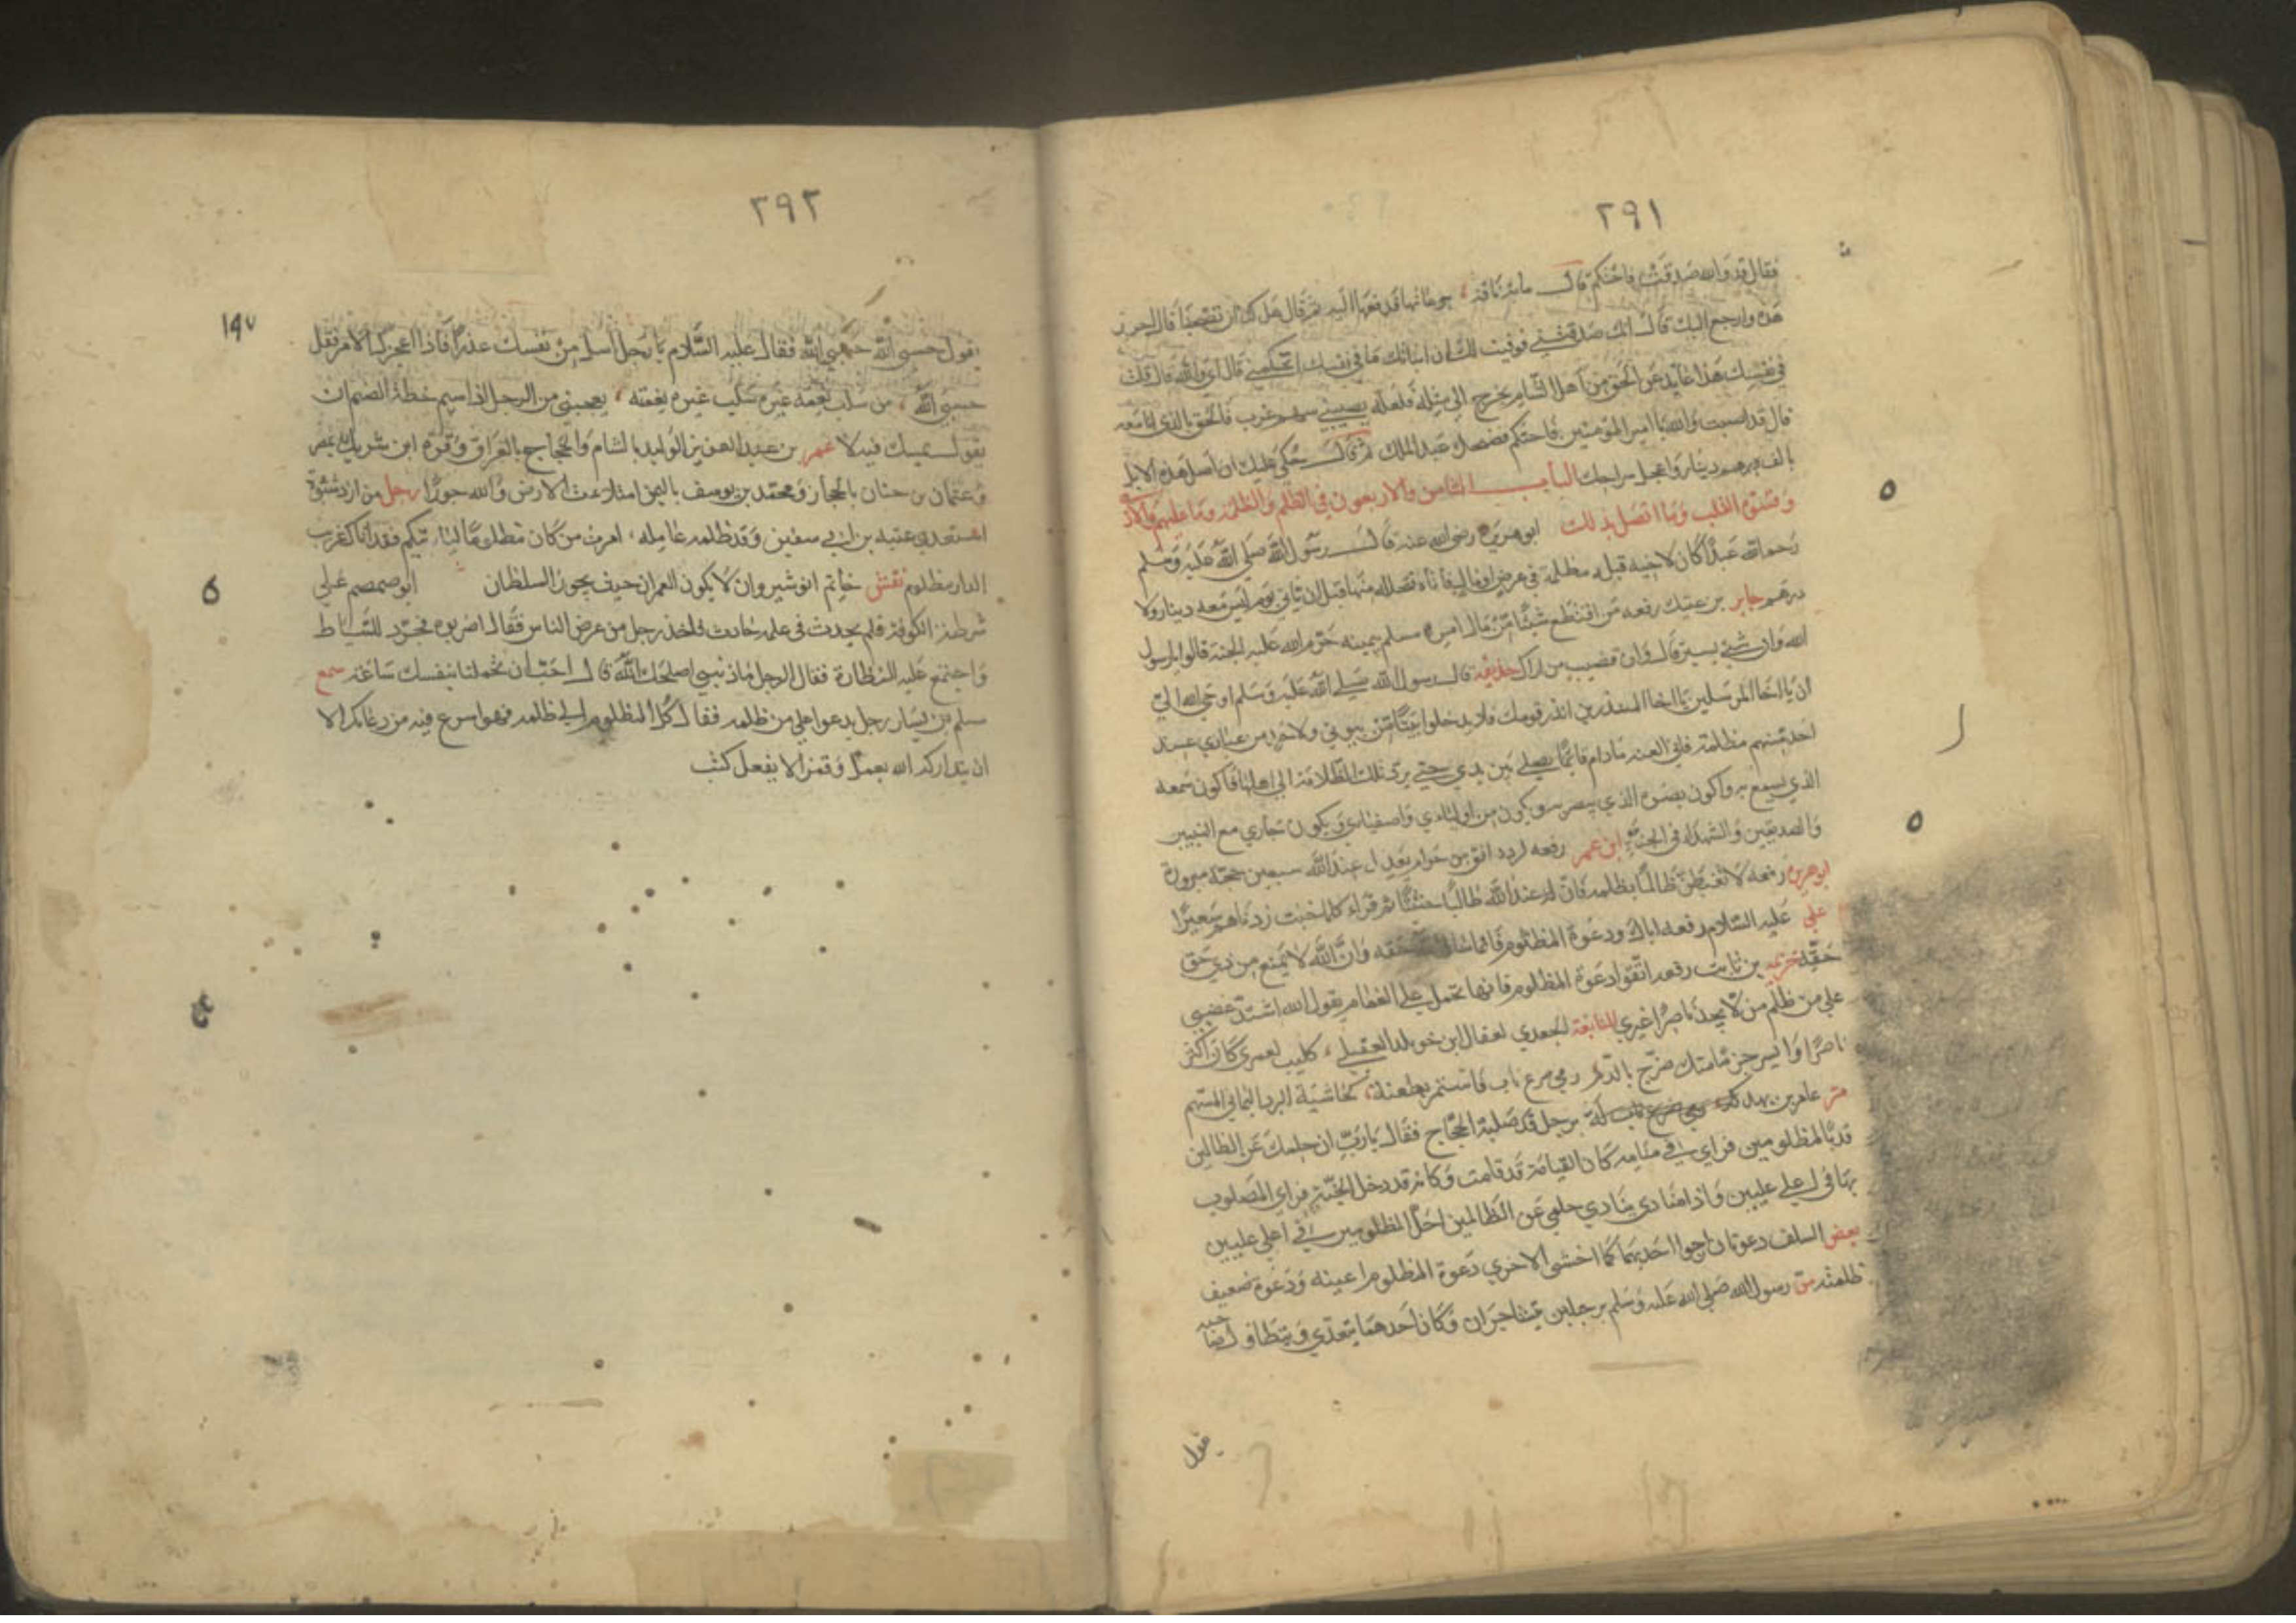 ٢٩١
فقال قد والله صدقت فاحتكم قال مائة ناقة برعاتها قد دفعها اليه ثم قال هل لك ان تفضحنا قال اخرج
هذه وارجع اليك قال انك صدقتني فوفيت لك ان انباتك ما في نفسك اتحكمني قال اي والله قال قلت
في نفسك هذا غايب عن الحق من اهل الشام يخرج الى مثله فلعله يصيبني سهم غرب فالحق بالذي انا معه
قال قد اصبت والله يا امير المؤمنين فاحتكم فضحك عبد الملك ثم قال حكمي عليك ان اصل هذه الابل
بالف درهم دينار واعجل سراحك الباب الثامن والاربعون في الظلم والظلمة وما عليهم والاذى
وقسوة القلب وما اتصل بذلك ابو هريرة رضي الله عنه قال رسول الله صلى الله عليه وسلم
رحم الله عبدا كان لاخيه قبله مظلمة في عرض او مال فاتاه فتحلله منها قبل ان ياتي يوم ليس معه دينار ولا
درهم جابر بن عتيك رفعه من اقتطع شيئا من مال امرء مسلم بيمينه حرم الله عليه الجنة قالوا يا رسول
الله وان شئ يسير قال وان قضيب من اراك حذيفة قال رسول الله صلى الله عليه وسلم اوحى الله الي
ان يا اخا المرسلين يا اخا المنذرين انذر قومك فلا يدخلوا بيتا من بيوتي ولاحد من عبادي عند
احد منهم مظلمة فاني العنه ما دام قائما يصلي بين يدي حتى يرد تلك الظلامة الى اهلها فاكون سمعه
الذي يسمع به واكون بصره الذي يبصر به ويكون من اوليائي واصفيائي ويكون جاري مع النبيين
والصديقين والشهداء في الجنة ابن عمر رفعه لرد دانق من حرام يعدل عند الله سبعين حجة مبرورة
ابو هريرة رفعه لا تغبطن ظالما بظلمه فان له عند الله طالبا حثيثا ثم قراء كلما خبت زدناهم سعيرا
علي عليه السلام رفعه اياك ودعوة المظلوم فانما حقه وان الله لا يمنع من ذي حق
حقه خزيمة بن ثابت رفعه اتقوا دعوة المظلوم فانها تحمل على الغمام يقول الله اشتد غضبي
على من ظلم من لا يجد ناصرا غيري للنابغة الجعدي لعقال ابن خويلد العقيلي كليب لعمري كان اكثر
ناصرا وايسر جرما منك ضرج بالدم رمى ضرع ناب فاستمر بطعنة كحاشية البرد اليماني المسهم
مر عامر بن بهدلة برجل قد صلبه الحجاج فقال يا رب ان حلمك عن الظالمين
قد بالمظلومين فراى في منامه كان القيامة قد قامت وكانه قد دخل الجنة فراى المصلوب
بها في اعلى عليين واذا منادي ينادي حلمي عن الظالمين احل المظلومين في اعلى عليين
بعض السلف دعوتان ارجوا احديهما كما اخشى الاخرى دعوة المظلوم اعينه ودعوة ضعيف
ظلمته مر رسول الله صلى الله عليه وسلم برجلين يتشاجران وكان احدهما يتعدى ويتطاول صاحبه
يقول
٢٩٢
١٩٧
يقول حسبي الله حسبي الله فقال عليه السلام يا رجل ابسل من نفسك عذرا فاذا اعجزك الامر فقل
حسبي الله من سلب نعمة غيره سلب غيره نعمته يعجبني من الرجل اذا سيم خطة الضيم ان
يقول عمر بن عبد العزيز الوليد بالشام والحجاج بالعراق وقرة ابن شريك بمصر
وعثمان بن حنان بالحجاز ومحمد بن يوسف باليمن امتلاءت الارض والله جورا رجل من ازدشنوة
استعدى عتبة بن ابي سفين وقد ظلمه عامله امرت من كان مظلوما ليأتيكم فقد اتاكم غريب
الدار مظلوم نقش خاتم انوشيروان لا يكون العمران حيث يجوز السلطان ابو صمصم علي
شرطة الكوفة فلم يحدث في عمله حادث فاخذ رجل من عرض الناس فقال اضربوه فجرد للسياط
واجتمع عليه النظارة فقال الرجل ما ذنبي اصلحك الله قال احب ان تجملنا بنفسك ساعة سمع
مسلم بن يسار رجل يدعوا على من ظلمه فقال كل المظلوم الى ظلمه فهو اسرع فيه من دعائك الا
ان يتداركه الله بعمل وقمن الا يفعل كتب